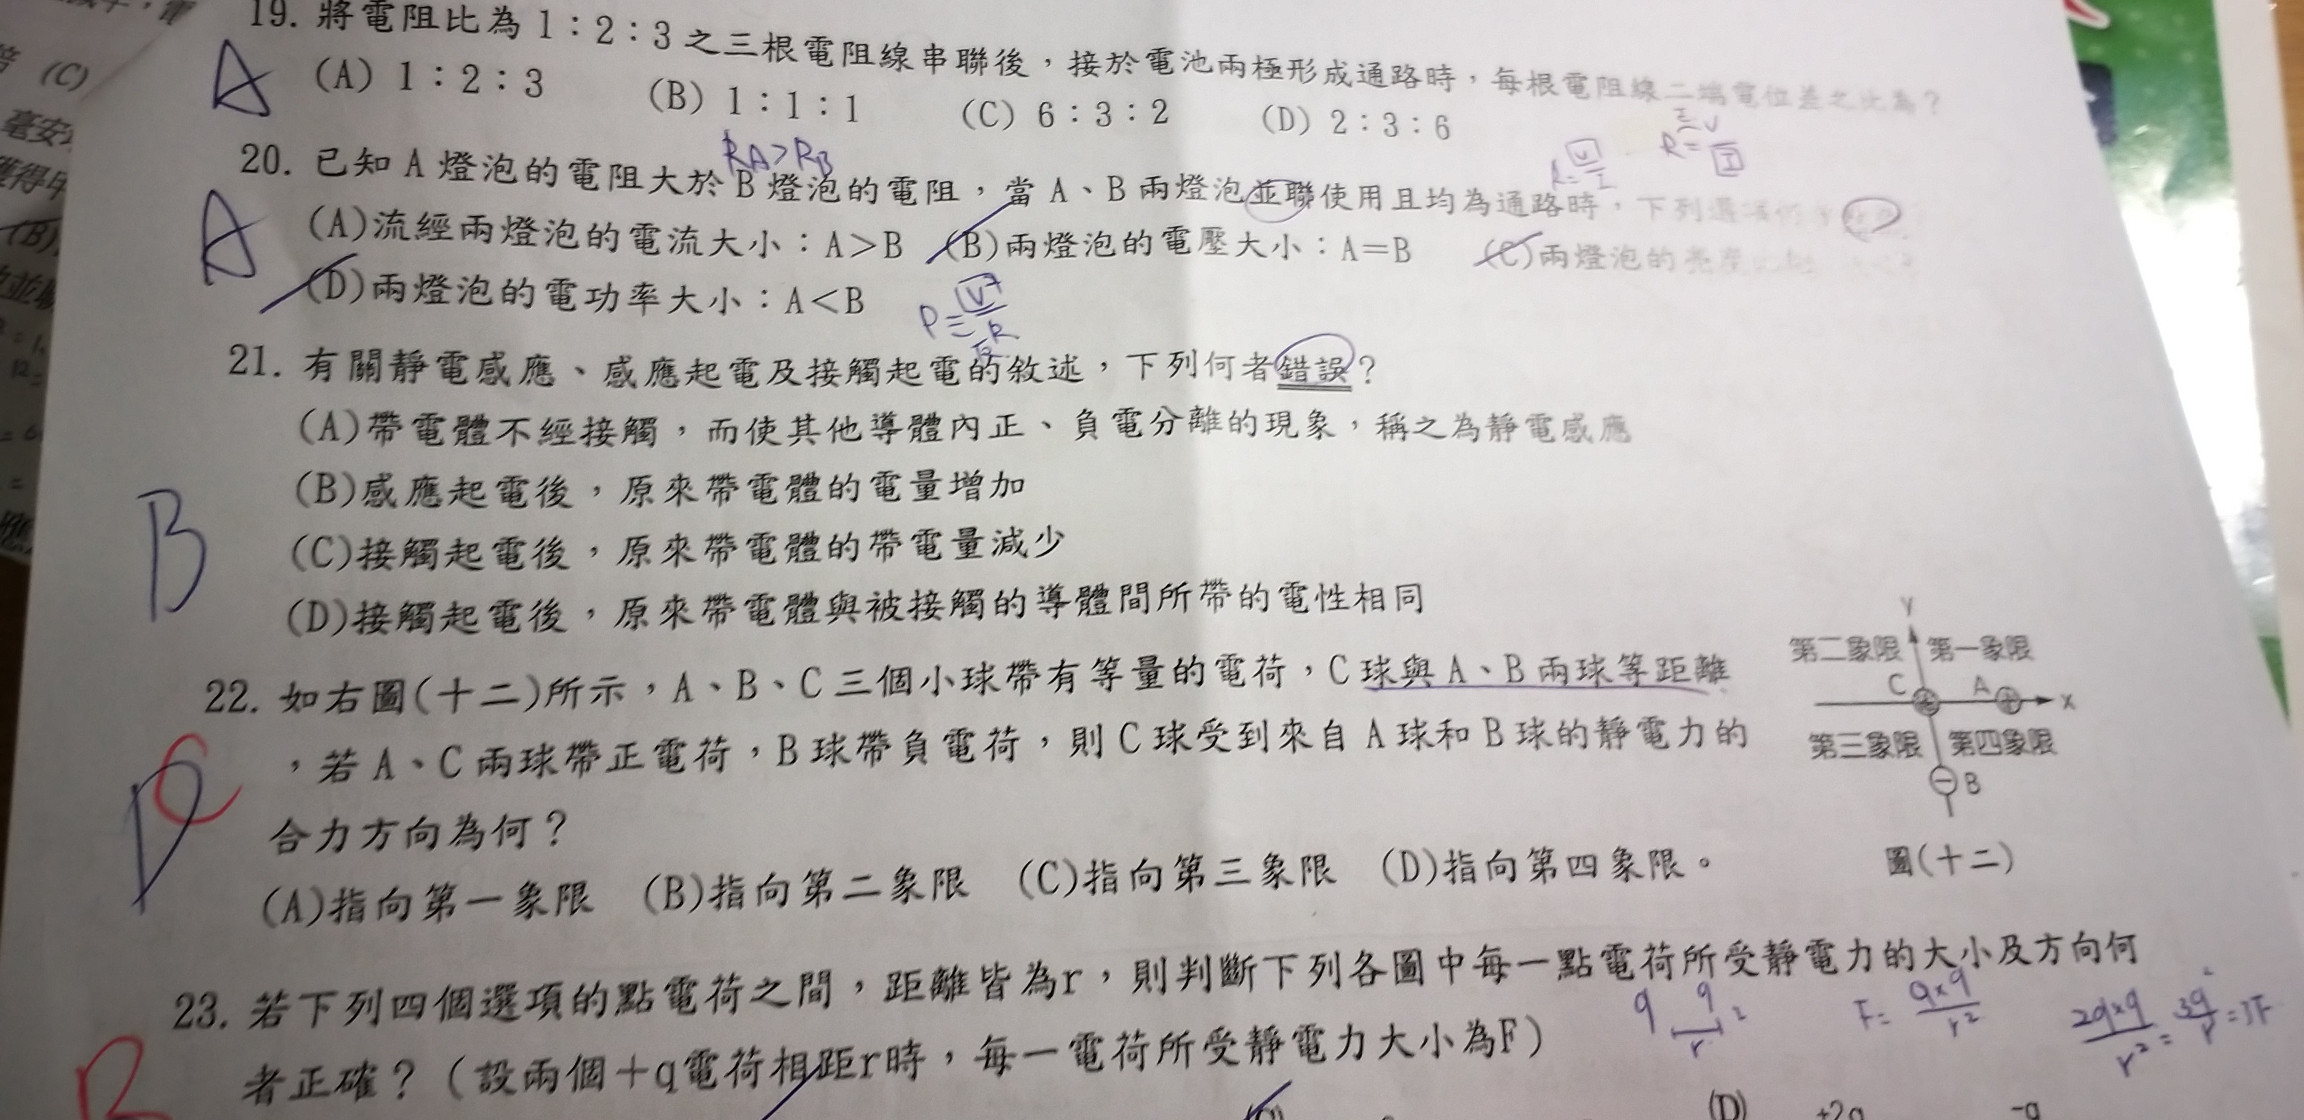 19. 將電阻比為1:2:3之三根電阻線串聯後,接於電池兩極形成通路時,每根電阻線二端電位差之比為?
A (A) 1:2:3 (B) 1:1:1 (C) 6:3:2 (D) 2:3:6
RA>RB R=V/I R=V/I
20. 已知A燈泡的電阻大於B燈泡的電阻,當A、B兩燈泡並聯使用且均為通路時,下列選項何者
A (A)流經兩燈泡的電流大小:A>B (B)兩燈泡的電壓大小:A=B (C)兩燈泡的亮度
(D)兩燈泡的電功率大小:A<B
21. 有關靜電感應、感應起電及接觸起電的敘述,下列何者錯誤?
(A)帶電體不經接觸,而使其他導體內正、負電分離的現象,稱之為靜電感應
B (B)感應起電後,原來帶電體的電量增加
(C)接觸起電後,原來帶電體的帶電量減少
(D)接觸起電後,原來帶電體與被接觸的導體間所帶的電性相同
22. 如右圖(十二)所示,A、B、C三個小球帶有等量的電荷,C球與A、B兩球等距離
,若A、C兩球帶正電荷,B球帶負電荷,則C球受到來自A球和B球的靜電力的
D C 合力方向為何?
(A)指向第一象限 (B)指向第二象限 (C)指向第三象限 (D)指向第四象限。
y
第二象限 第一象限
C A x
第三象限 第四象限
B
圖(十二)
23. 若下列四個選項的點電荷之間,距離皆為r,則判斷下列各圖中每一點電荷所受靜電力的大小及方向何
B 者正確?(設兩個+q電荷相距r時,每一電荷所受靜電力大小為F)
(D) +2q -q
(C)